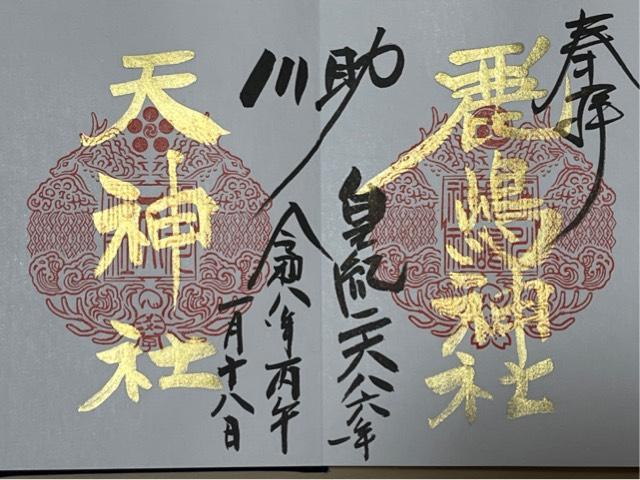 奉拝
鹿嶋神社
助川
皇紀二六八六年
令和八年丙午
一月十八日
天神社